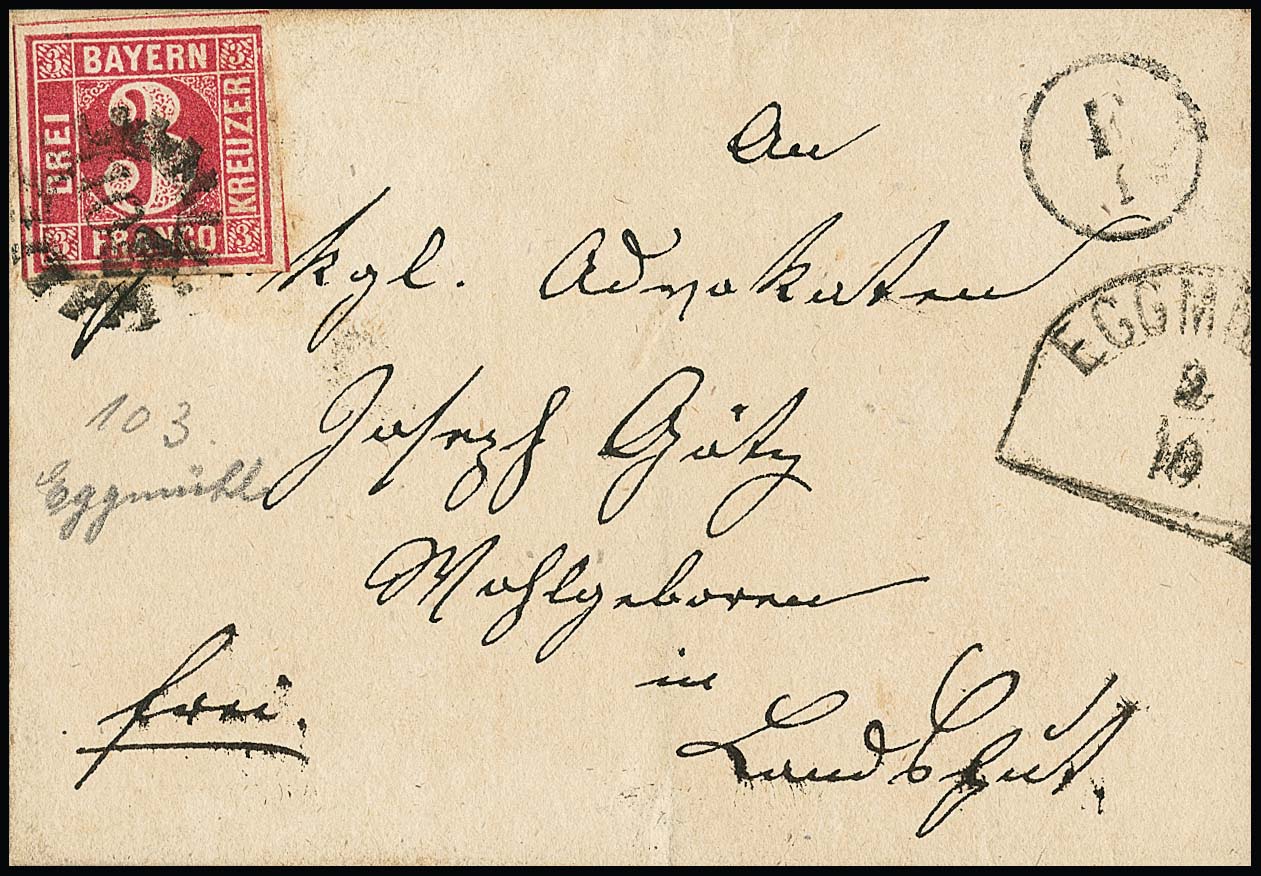 3 BAYERN 3
DREI 3 KREUZER
3 FRANCO 3
An
kgl. Advokaten
Joseph Götz
Wohlgeboren
in
Landshut.
frei.
103.
Eggmühl
EGGM
2
10